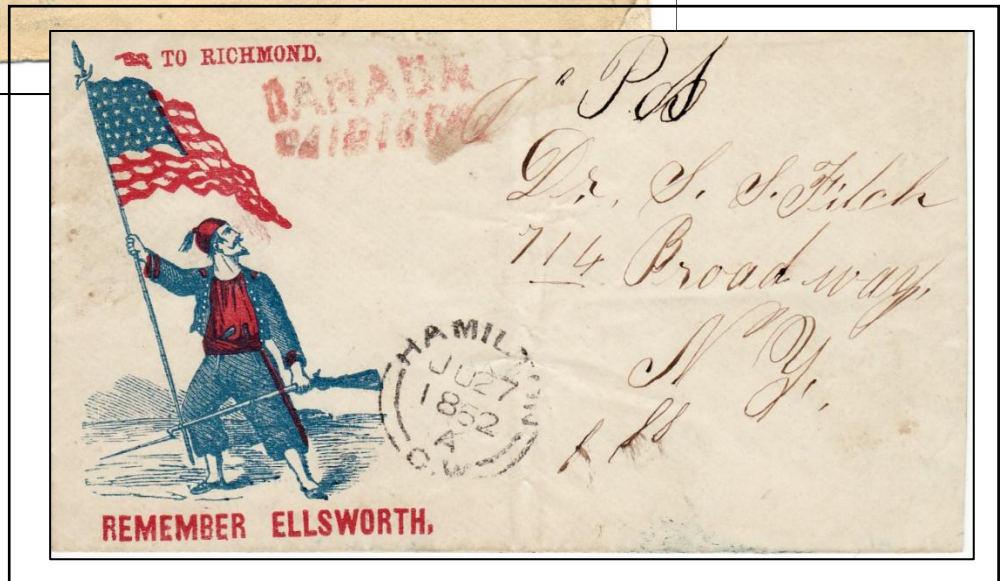 TO RICHMOND.
CANADA
PAID 10
Pd
Dr. S. S. Fitch
714 Broadway.
N Y.
HAMILTON
JU 27
1862
A
C.W.
REMEMBER ELLSWORTH,